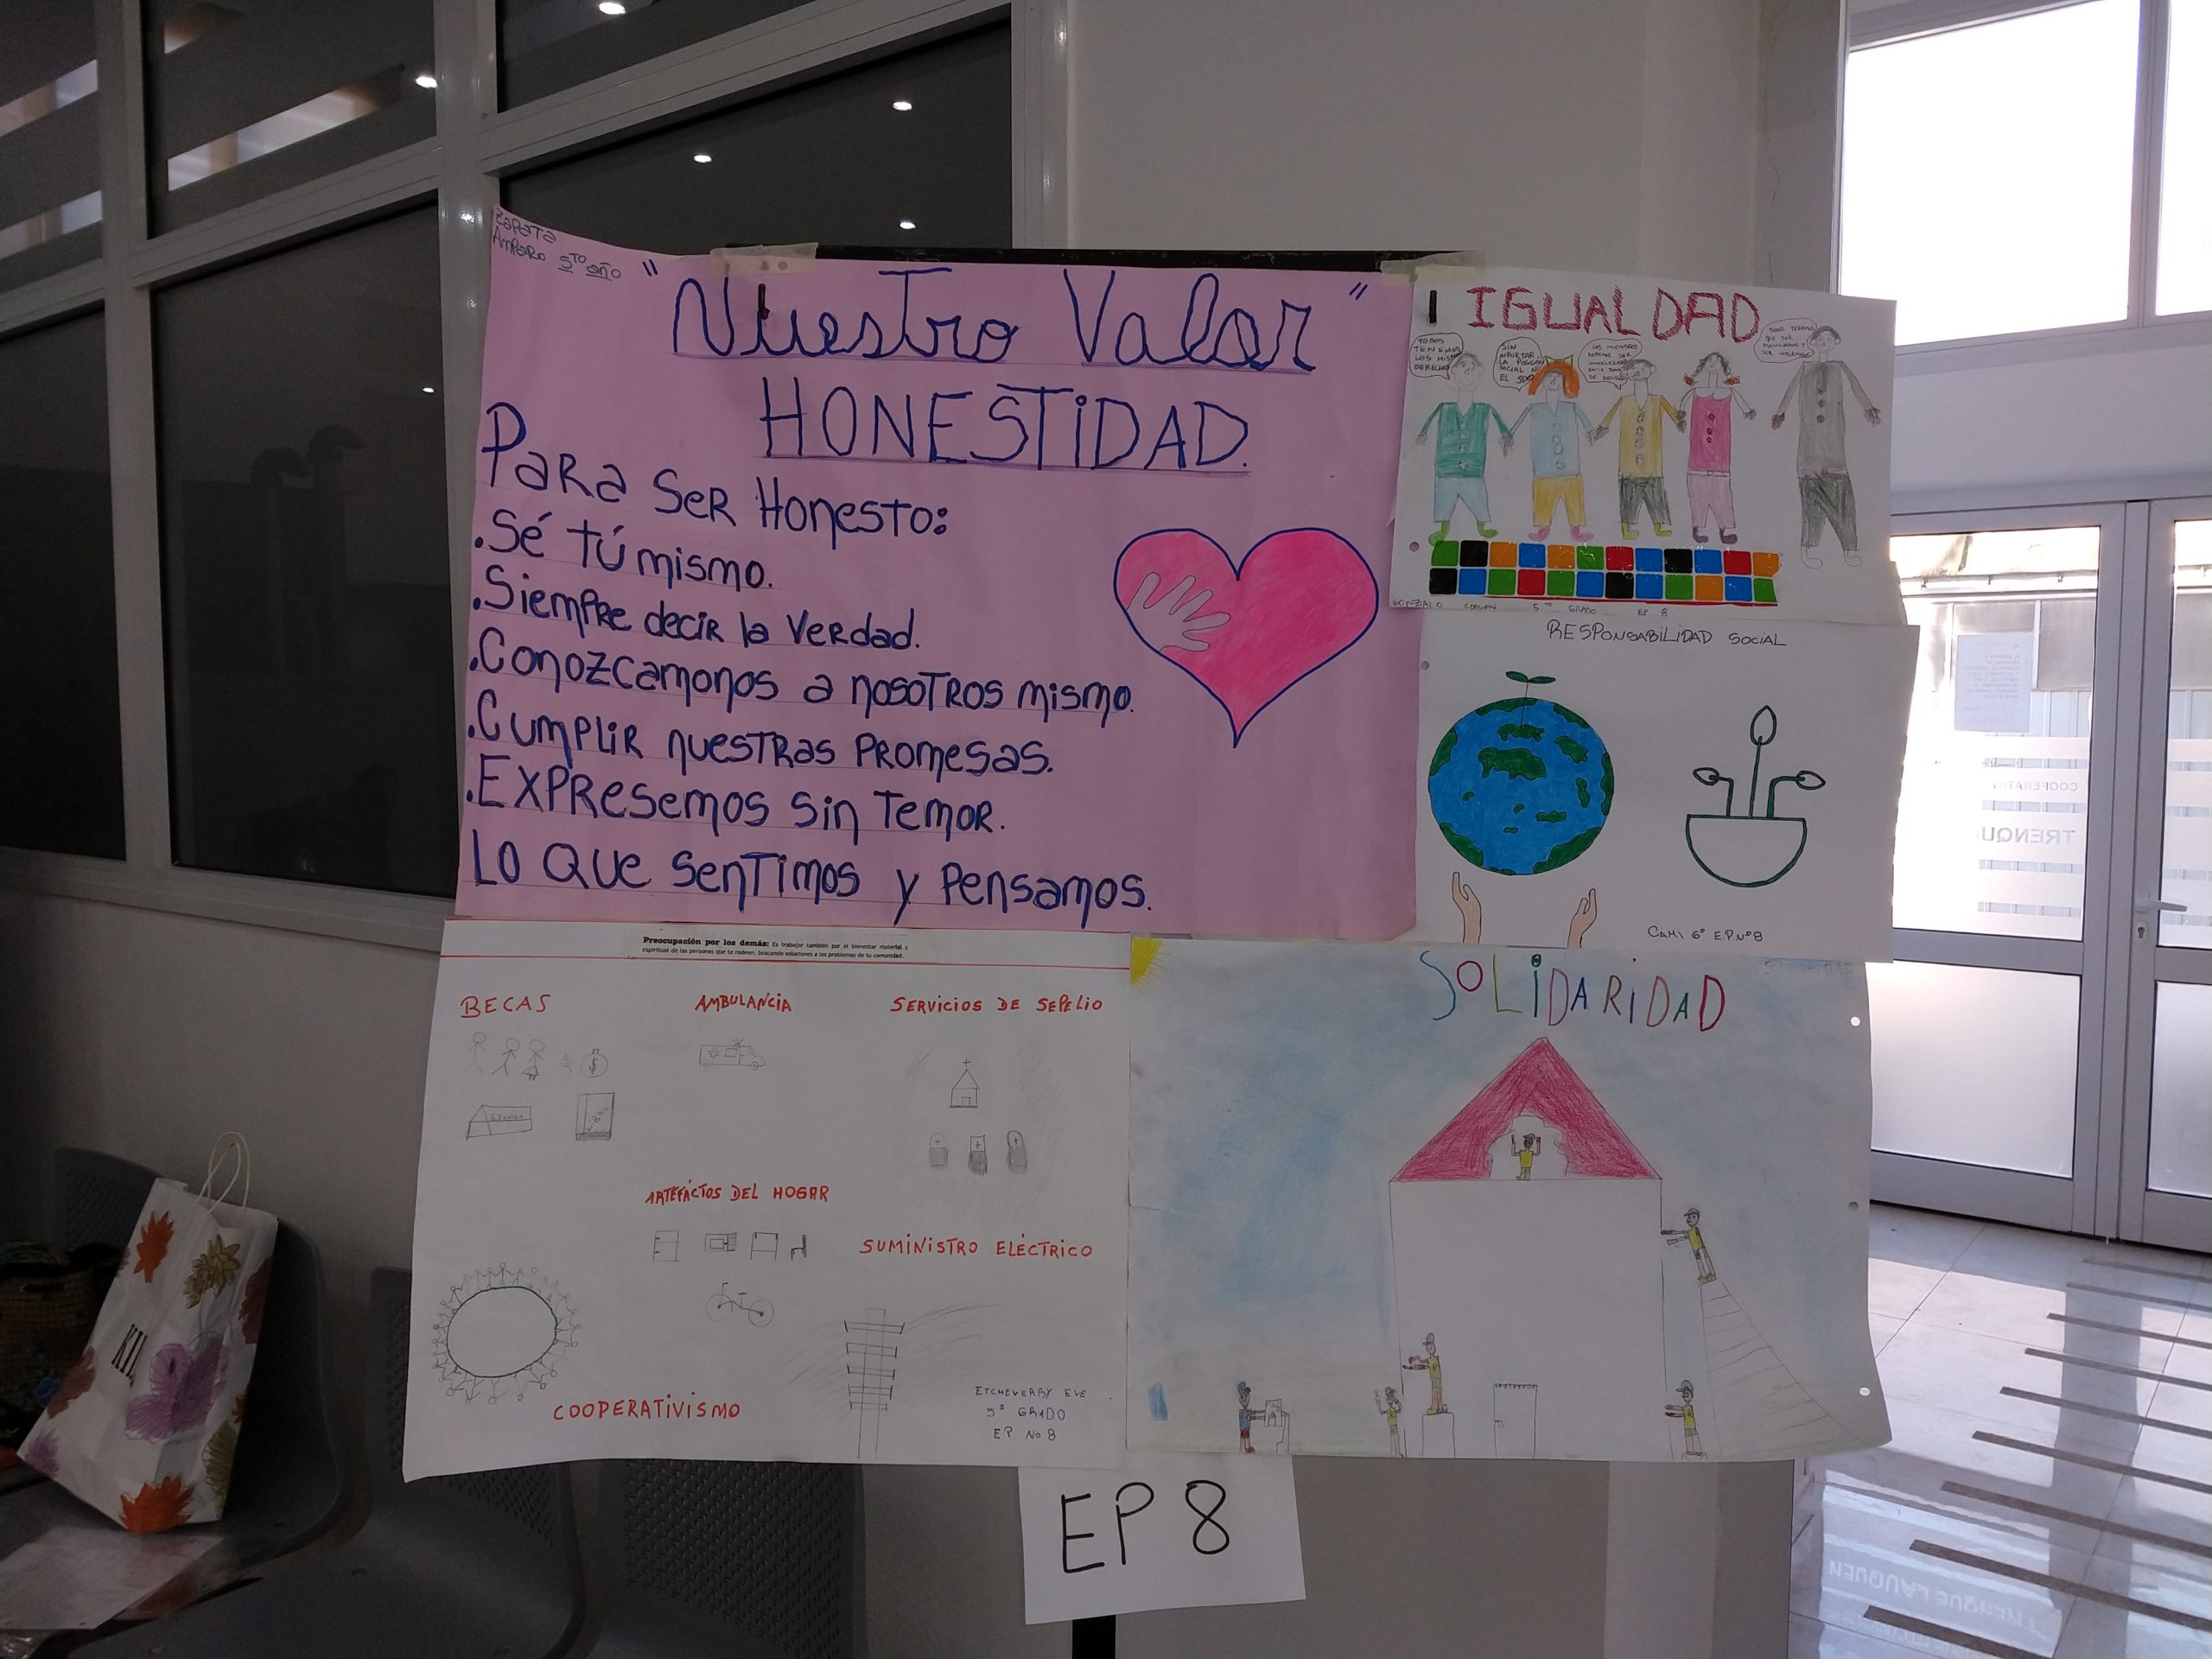 Zapata
Amparo 5to año
"Nuestro Valor"
HONESTIDAD.
Para ser Honesto:
.Sé tú mismo.
.Siempre decir la verdad.
.Conozcamonos a nosotros mismo.
.Cumplir nuestras promesas.
.Expresemos sin temor.
Lo que sentimos y pensamos.
IGUALDAD
TODOS
TENEMOS
LOS MISM
DERECHO
SIN
IMPORTAR
LA POSICIÓN
SOCIAL NI
EL SEXO
GONZALO 5TO GRADO EP 8
RESPONSABILIDAD SOCIAL
CAMI 6° E.P.N°8
Preocupación por los demás: Es trabajar también por el bienestar material y
espiritual de las personas que te rodean, buscando soluciones a los problemas de tu comunidad.
BECAS
AMBULANCIA
SERVICIOS DE SEPELIO
$
ARTEFÁCTOS DEL HOGAR
SUMINISTRO ELÉCTRICO
COOPERATIVISMO
ETCHEVERRY EVE
5° GRADO
EP No 8
SOLIDARIDAD
EP 8
COOPERATIV
TRENQU
TRENQUE LAUQUEN